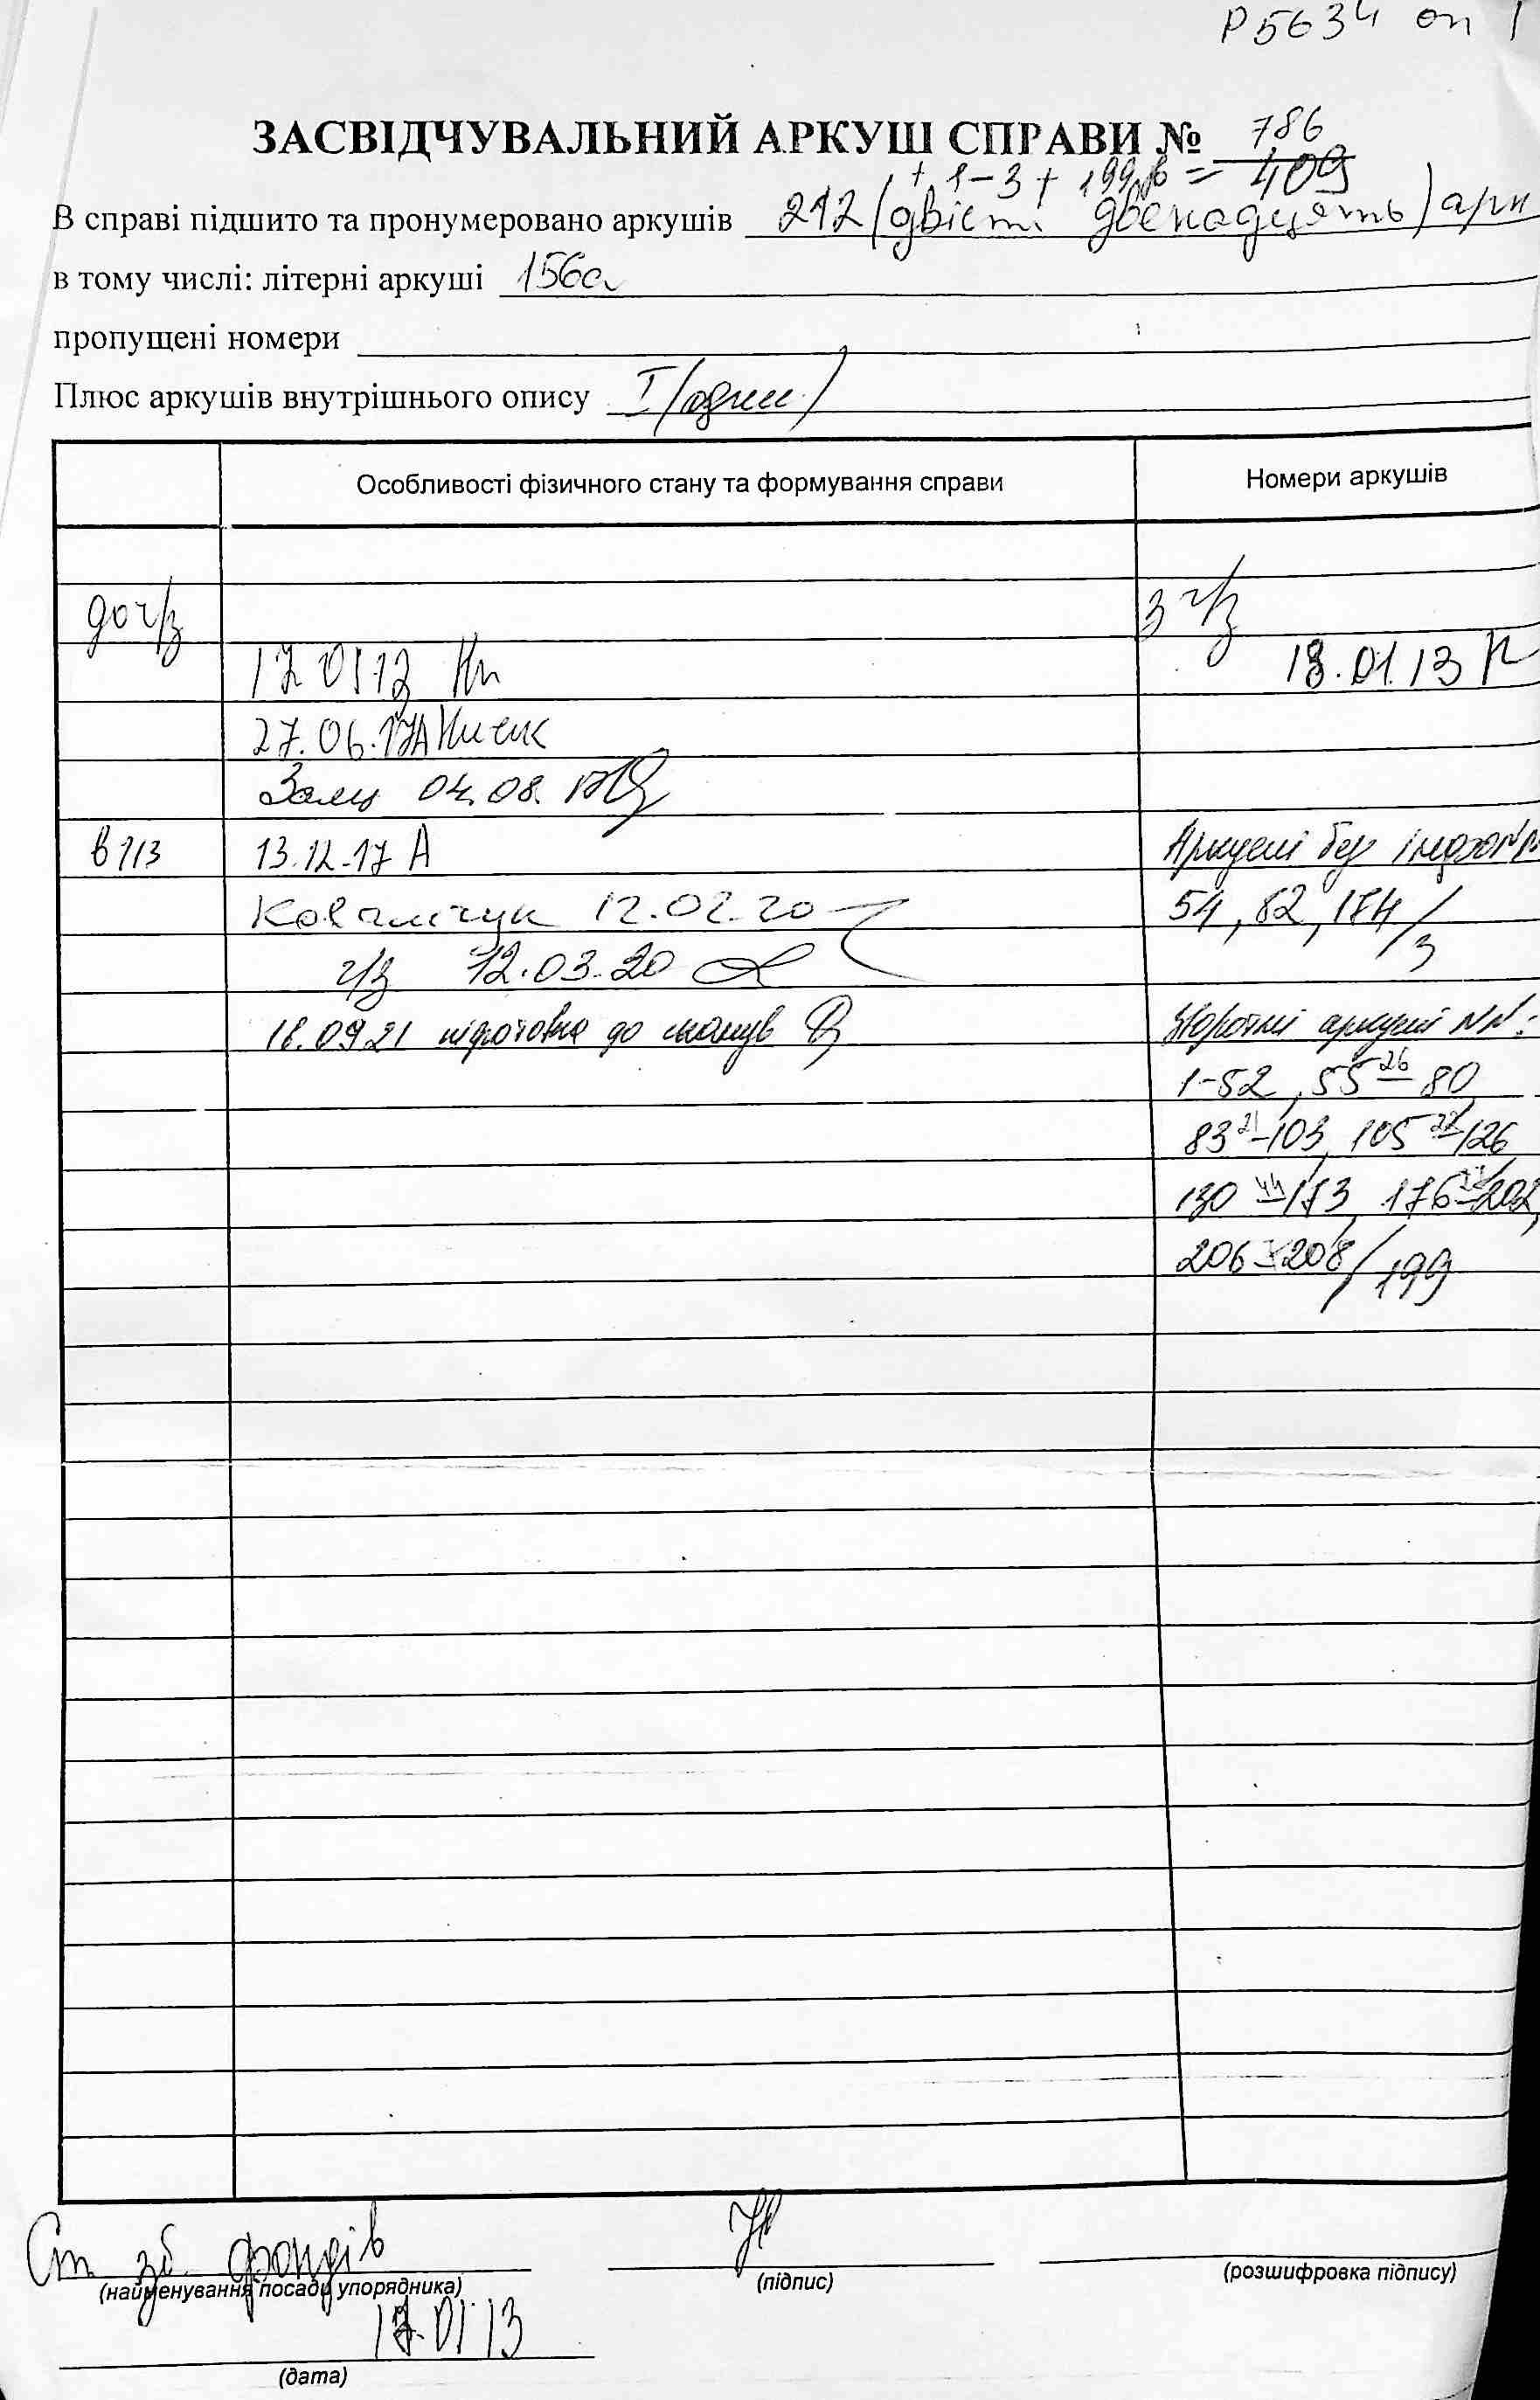 Р5634 оп 1
ЗАСВІДЧУВАЛЬНИЙ АРКУШ СПРАВИ № 786
+ 1-3 + 199 = 409
В справі підшито та пронумеровано аркушів 212 (двісті дванадцять) арк
в тому числі: літерні аркуші 156а
пропущені номери
Плюс аркушів внутрішнього опису I (один)
Особливості фізичного стану та формування справи
Номери аркушів
до ч/з
з ч/з
17 01 13
18.01.13
27.06.17
04.08.
в ч/з 13.12.17 А
Аркуші без
Ковальчук 12.02.20
54, 82, 174/3
ч/з 12.03.20
18.09.21 підготовка до сканув
Зворотні аркуші NN:
1-52, 55 26 - 80,
83 21 - 103, 105 22 - 126,
130 44 - 173, 176 27 - 202,
206 - 208/199
Ст зб фондів
(найменування посади упорядника)
(підпис)
(розшифровка підпису)
17.01 13
(дата)